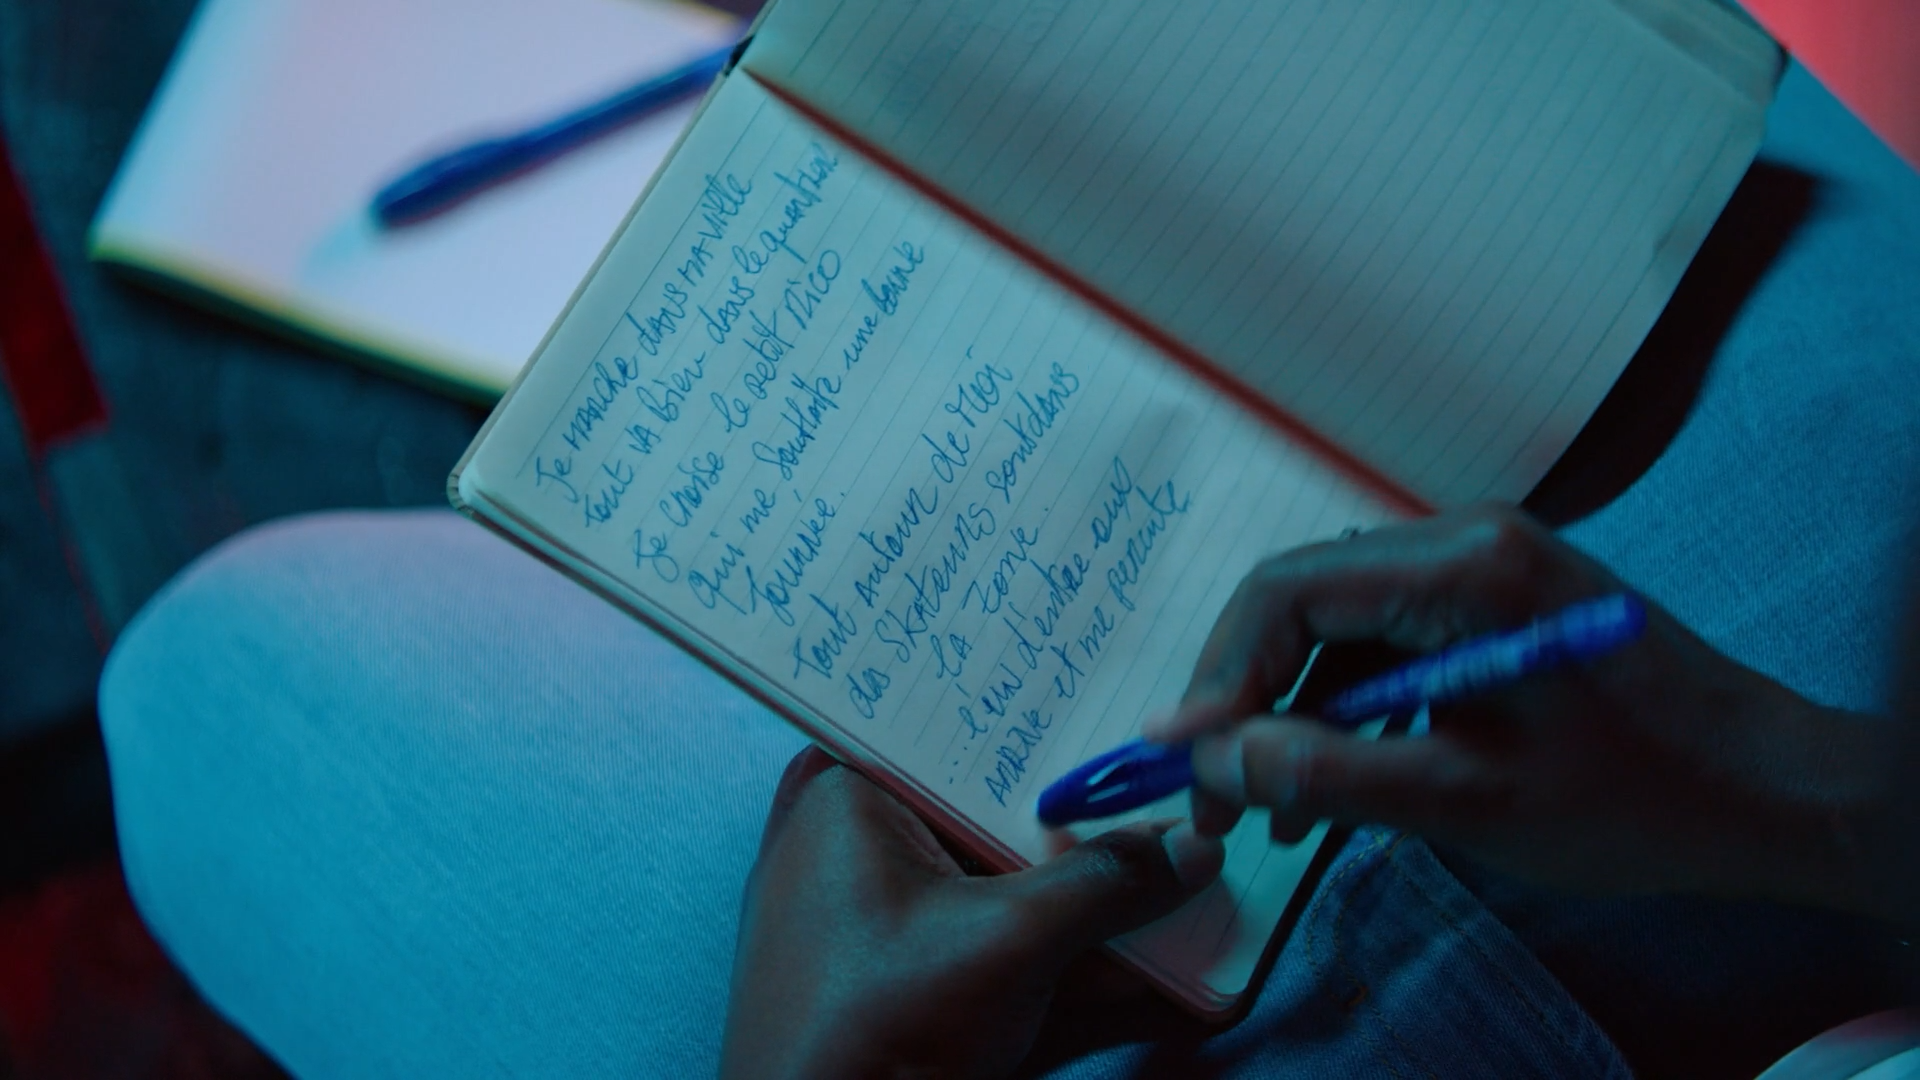 Je marche dans ma ville
tout va bien dans le quartier
Je croise le petit Nico
qui me souhaite une bonne
Journée.
Tout autour de Moi
des skateurs sont dans
la zone.
... l'un d'entre eux
arrive et me percute